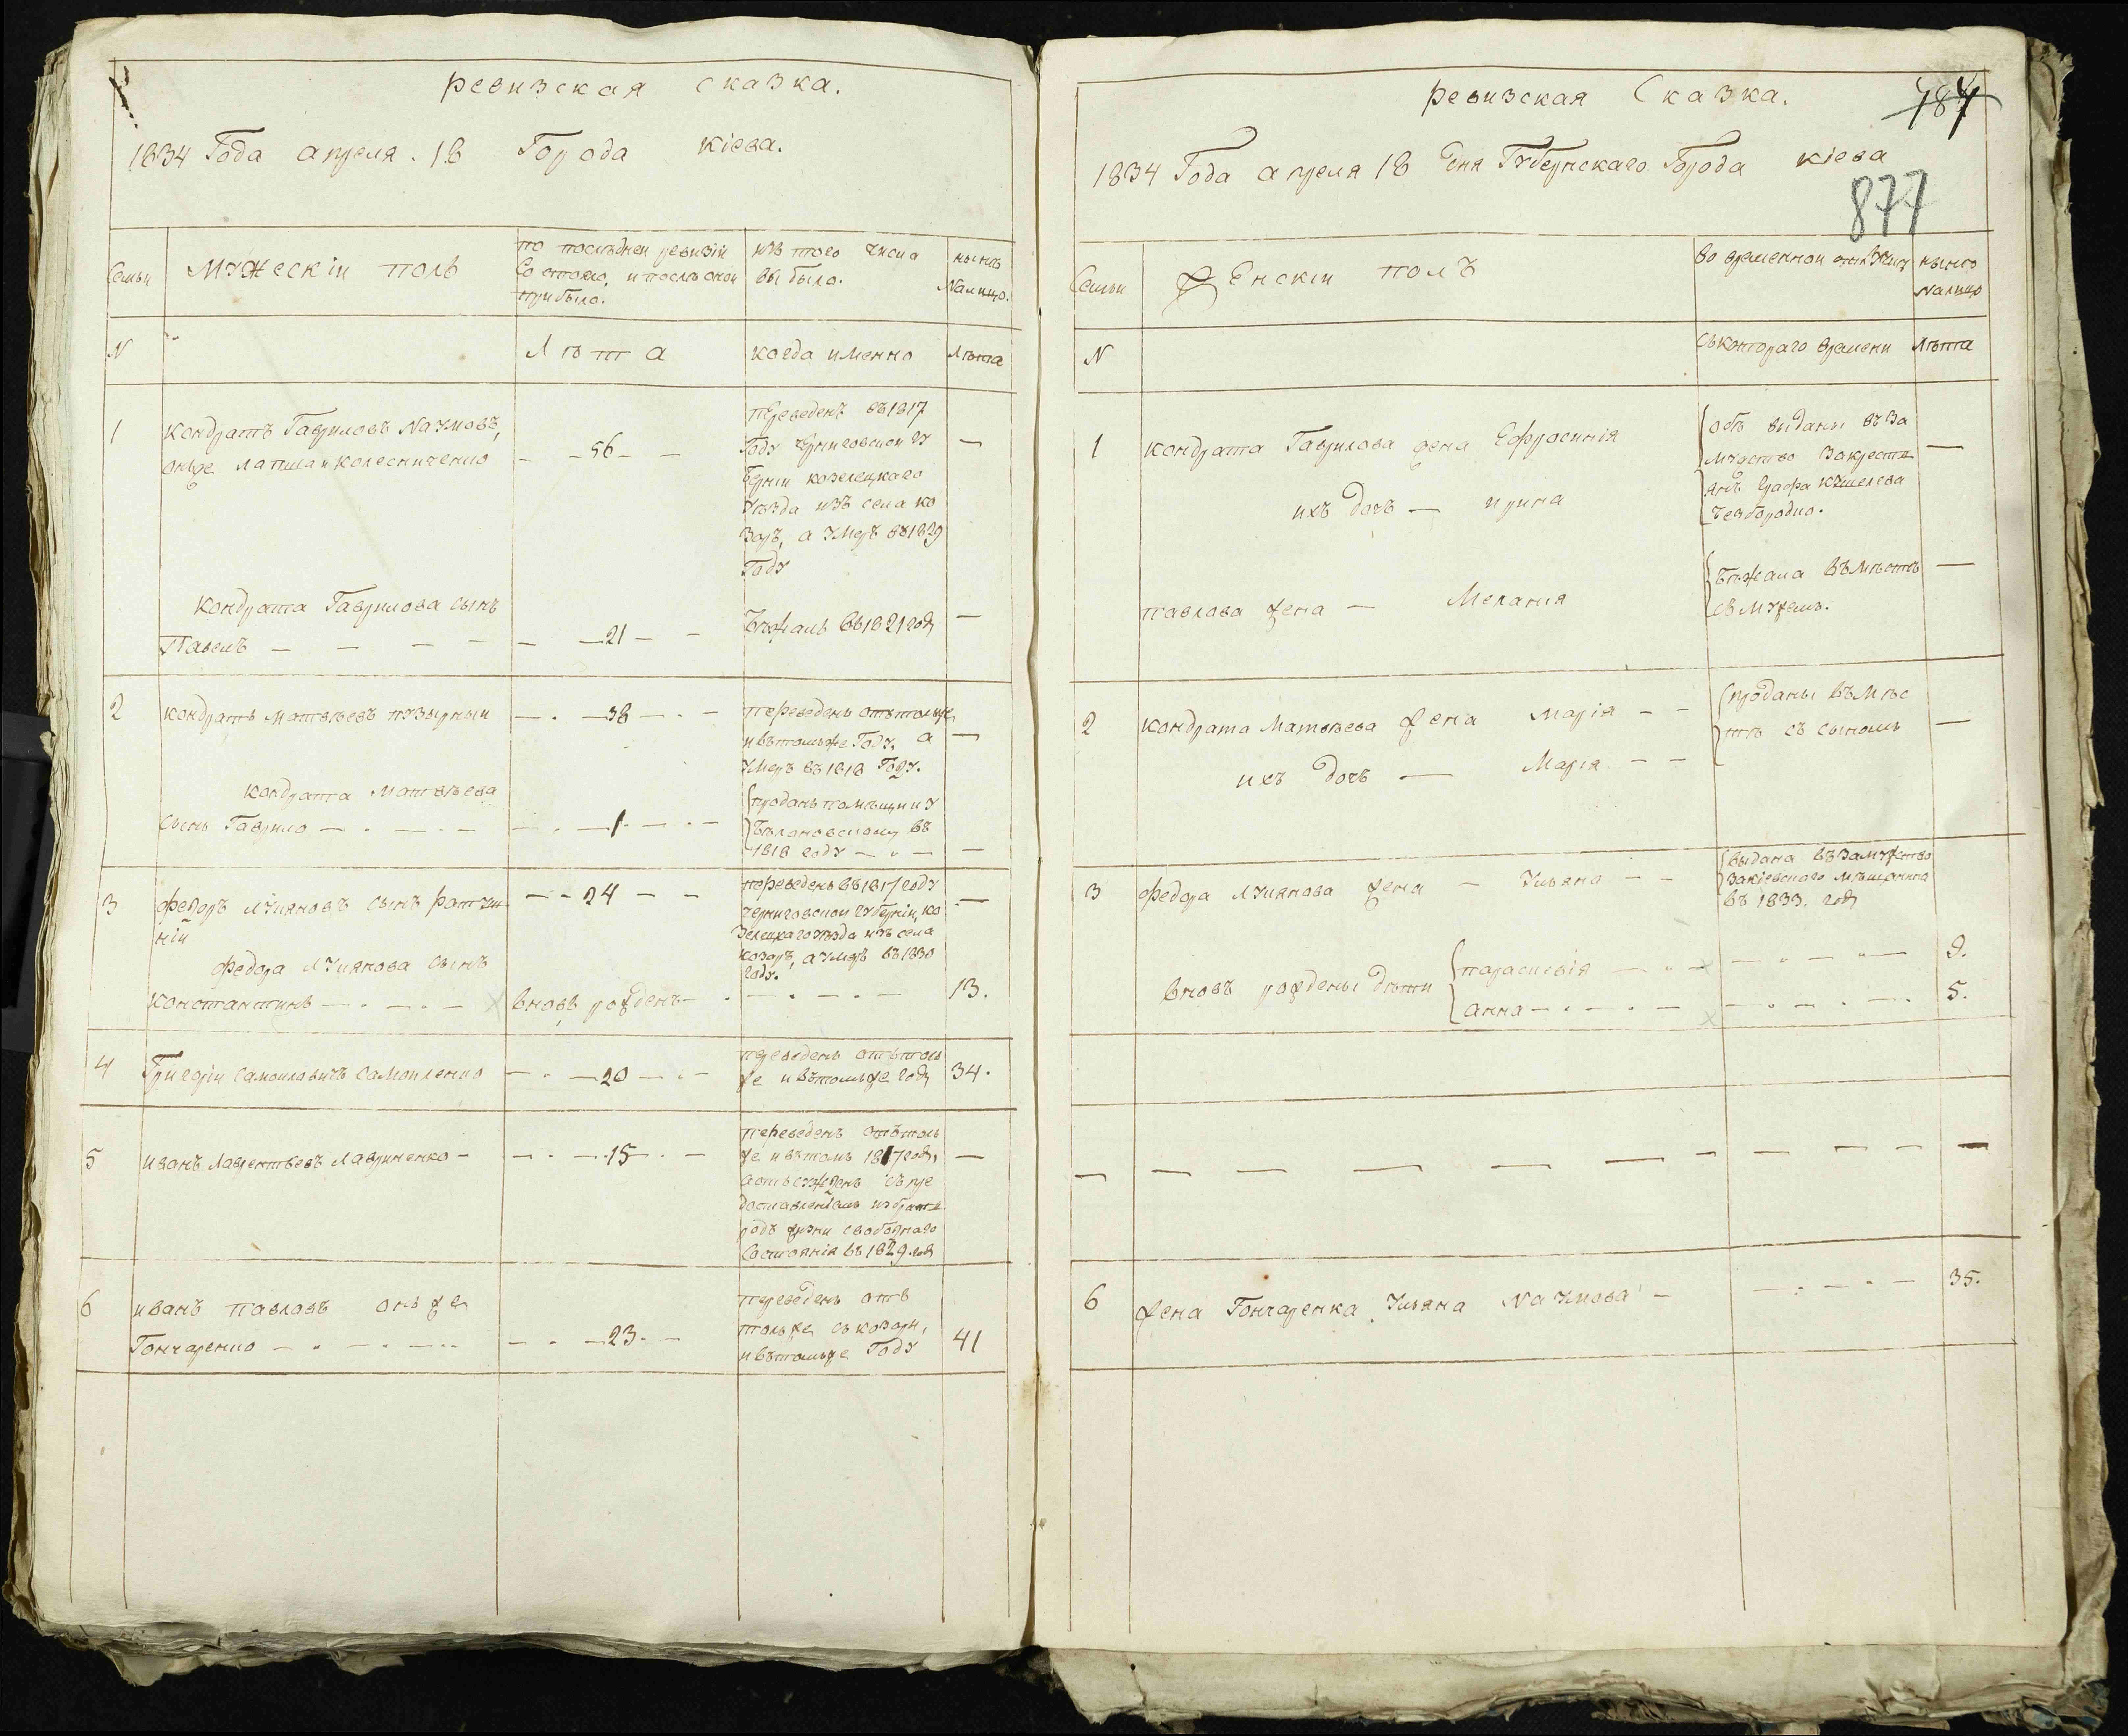 ревизская сказка.
1834 Года апреля 18 Города Кіева.
Семьи
Мужескій полъ
по последней ревизіи
Состояло, и послѣ оной
прибыло.
изъ того числа
выбыло.
нынѣ
Налицо.
N
Лѣта
когда именно
Лѣта
1
Кондратъ Гавриловъ Наумовъ,
онъже лапша и колесниченко
— — 56 — —
переведенъ въ 1817
Году Черниговской гу
берніи козелецкаго
уѣзда изъ села ко
заръ, а умеръ въ 1829
Году
—
Кондрата Гаврилова сынъ
Павелъ — — — —
— — 21 — —
бѣжалъ въ 1821 году
—
2
Кондратъ матвѣевъ пузырный
— . — 38 — . —
переведенъ отътольже
ивътомъже Году, а
умеръ въ 1818 Году.
—
Кондрата Матвѣева
сынъ Гаврило — . — . —
— . — 1 . — . —
проданъ помѣщику
Бѣлановскому въ
1818 году — . —
—
3
федоръ лукяновъ сынъ ратуш
ній
— — 24 — —
переведенъ въ 1817 году
черниговской губерніи, ко
зелецкаго уѣзда изъ села
козаръ, а умеръ въ 1830
году.
—
федора лукянова сынъ
константинъ — . — . — х
вновъ рожденъ — .
— . — . —
13.
4
Григорій Самоиловичъ Самоиленко
— . — 20 — . —
переведенъ отътоль
же и вътомъже году
34.
5
иванъ лаврентьевъ лавриненко —
— . — 15 — . —
переведенъ отътоль
же ивътомъ 1817 году,
а отъсужденъ съпре
доставленіемъ избрать
родъ жизни свободнаго
состоянія въ 1829 году
—
6
иванъ павловъ онъже
Гончаренко — . — . — ..
— . — 23. —
переведенъ отъ
тольже съ козаръ,
ивътомъже Году
41
ревизская Сказка.
784
1834 Года апреля 18 дня Губернскаго Города кіева
877
Семьи
Женскій полъ
во временной отлучкѣ
нынѣ
налицо
N
съкотораго времени
Лѣта
1
Кондрата Гаврилова жена Ефросинія
ихъ дочъ — ирина
обѣ виданы въ За
мужство Закресть
янъ Графа кушелева
безбородко.
—
павлова жена — Меланія
бѣжала въмѣстѣ
съ мужемъ.
—
2
Кондрата Матвѣева жена Марія — —
ихъ дочъ — Марія — —
проданы въмѣс
тѣ съ сыномъ
—
3
федора лукянова жена — Ульяна — —
выдана въ Замужетво
Закіевскаго мѣщанина
въ 1833. году
вновъ рождены дѣти
параскевія — . — х
— . — . —
9.
анна — . — . — х
— . — . — .
5.
— — — — — — — — — — —
6
жена Гончаренка Ульяна Наумова —
— . — . —
35.